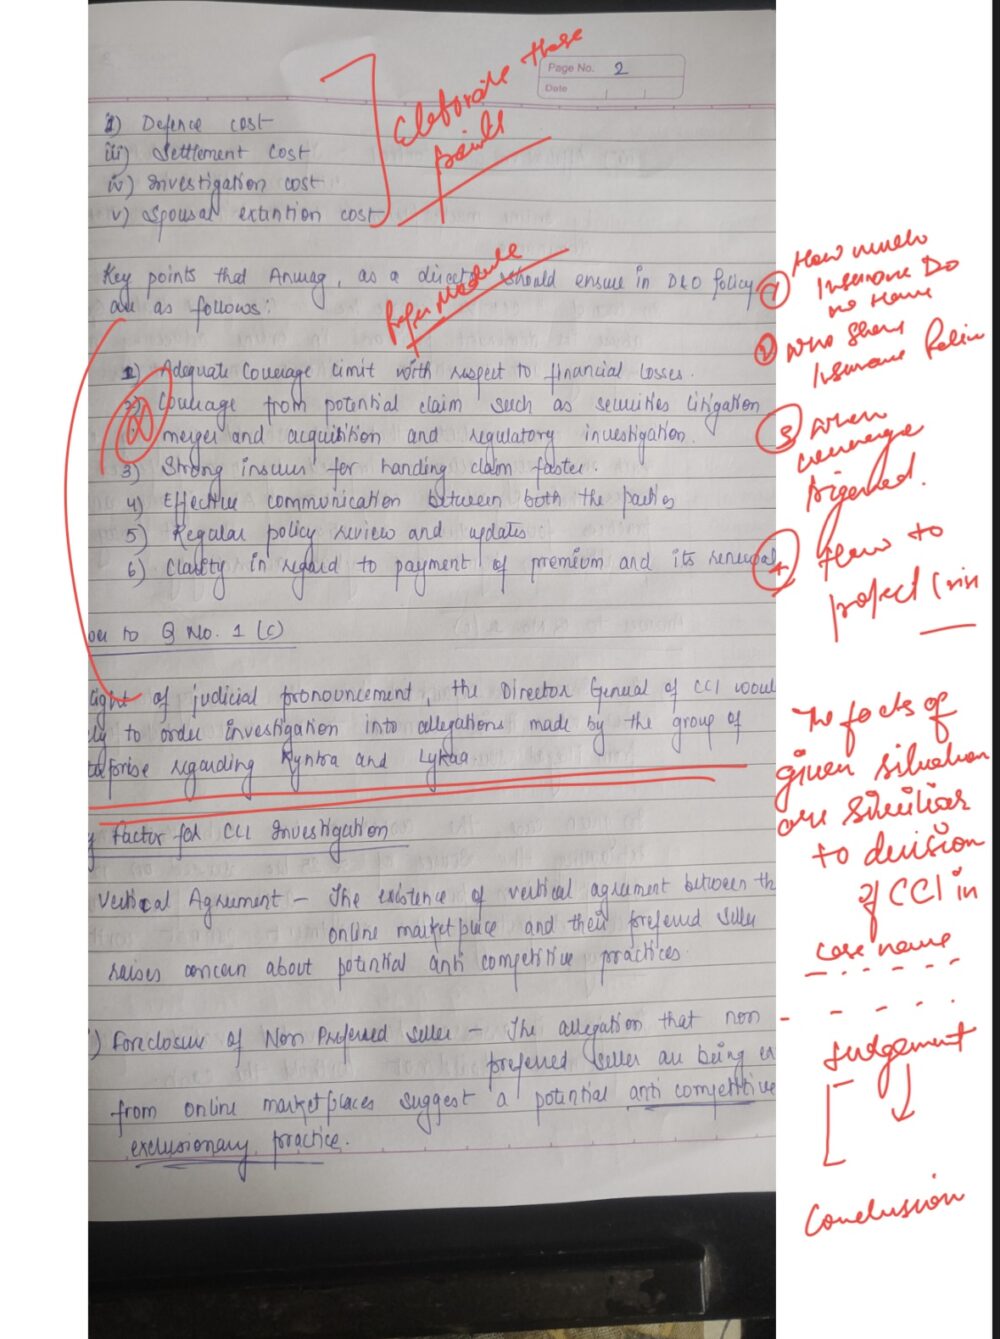 Page No. 2
Date
ii) Defence cost
iii) Settlement cost
iv) Investigation cost
v) Spousal extintion cost
Elaborate these
points
Key points that Anurag, as a director should ensure in D&O Policy
are as follows:
Refer Module
1) Adequate Coverage limit with respect to financial losses.
2) Coverage from potential claim such as securities litigation
merger and acquisition and regulatory investigation.
3) Strong insurer for handing claim faster.
4) Effective communication between both the parties
5) Regular policy review and updates
6) Clarity in regard to payment of premium and its renewal
1 How much
Insurance Do
no Have
2 Who Share
Insurance Policy
3 When
coverage
trigerred.
4 How to
to Q No. 1 (c)
light of judicial pronouncement, the Director General of CCI woul
ly to order investigation into allegations made by the group of
regarding Kyntra and Lykaa
factor for CCI Investigation
Vertical Agreement - The existence of vertical agreement between th
online marketplace and their preferred seller
raises concern about potential anti competitive practices.
) Foreclosure of Non Preferred seller - The allegation that non
preferred seller are being ex
from online marketplaces suggest a potential anti competitive
exclusionary practice.
The facts of
given situation
are similiar
to decision
of CCI in
case name
Judgement
Conclusion